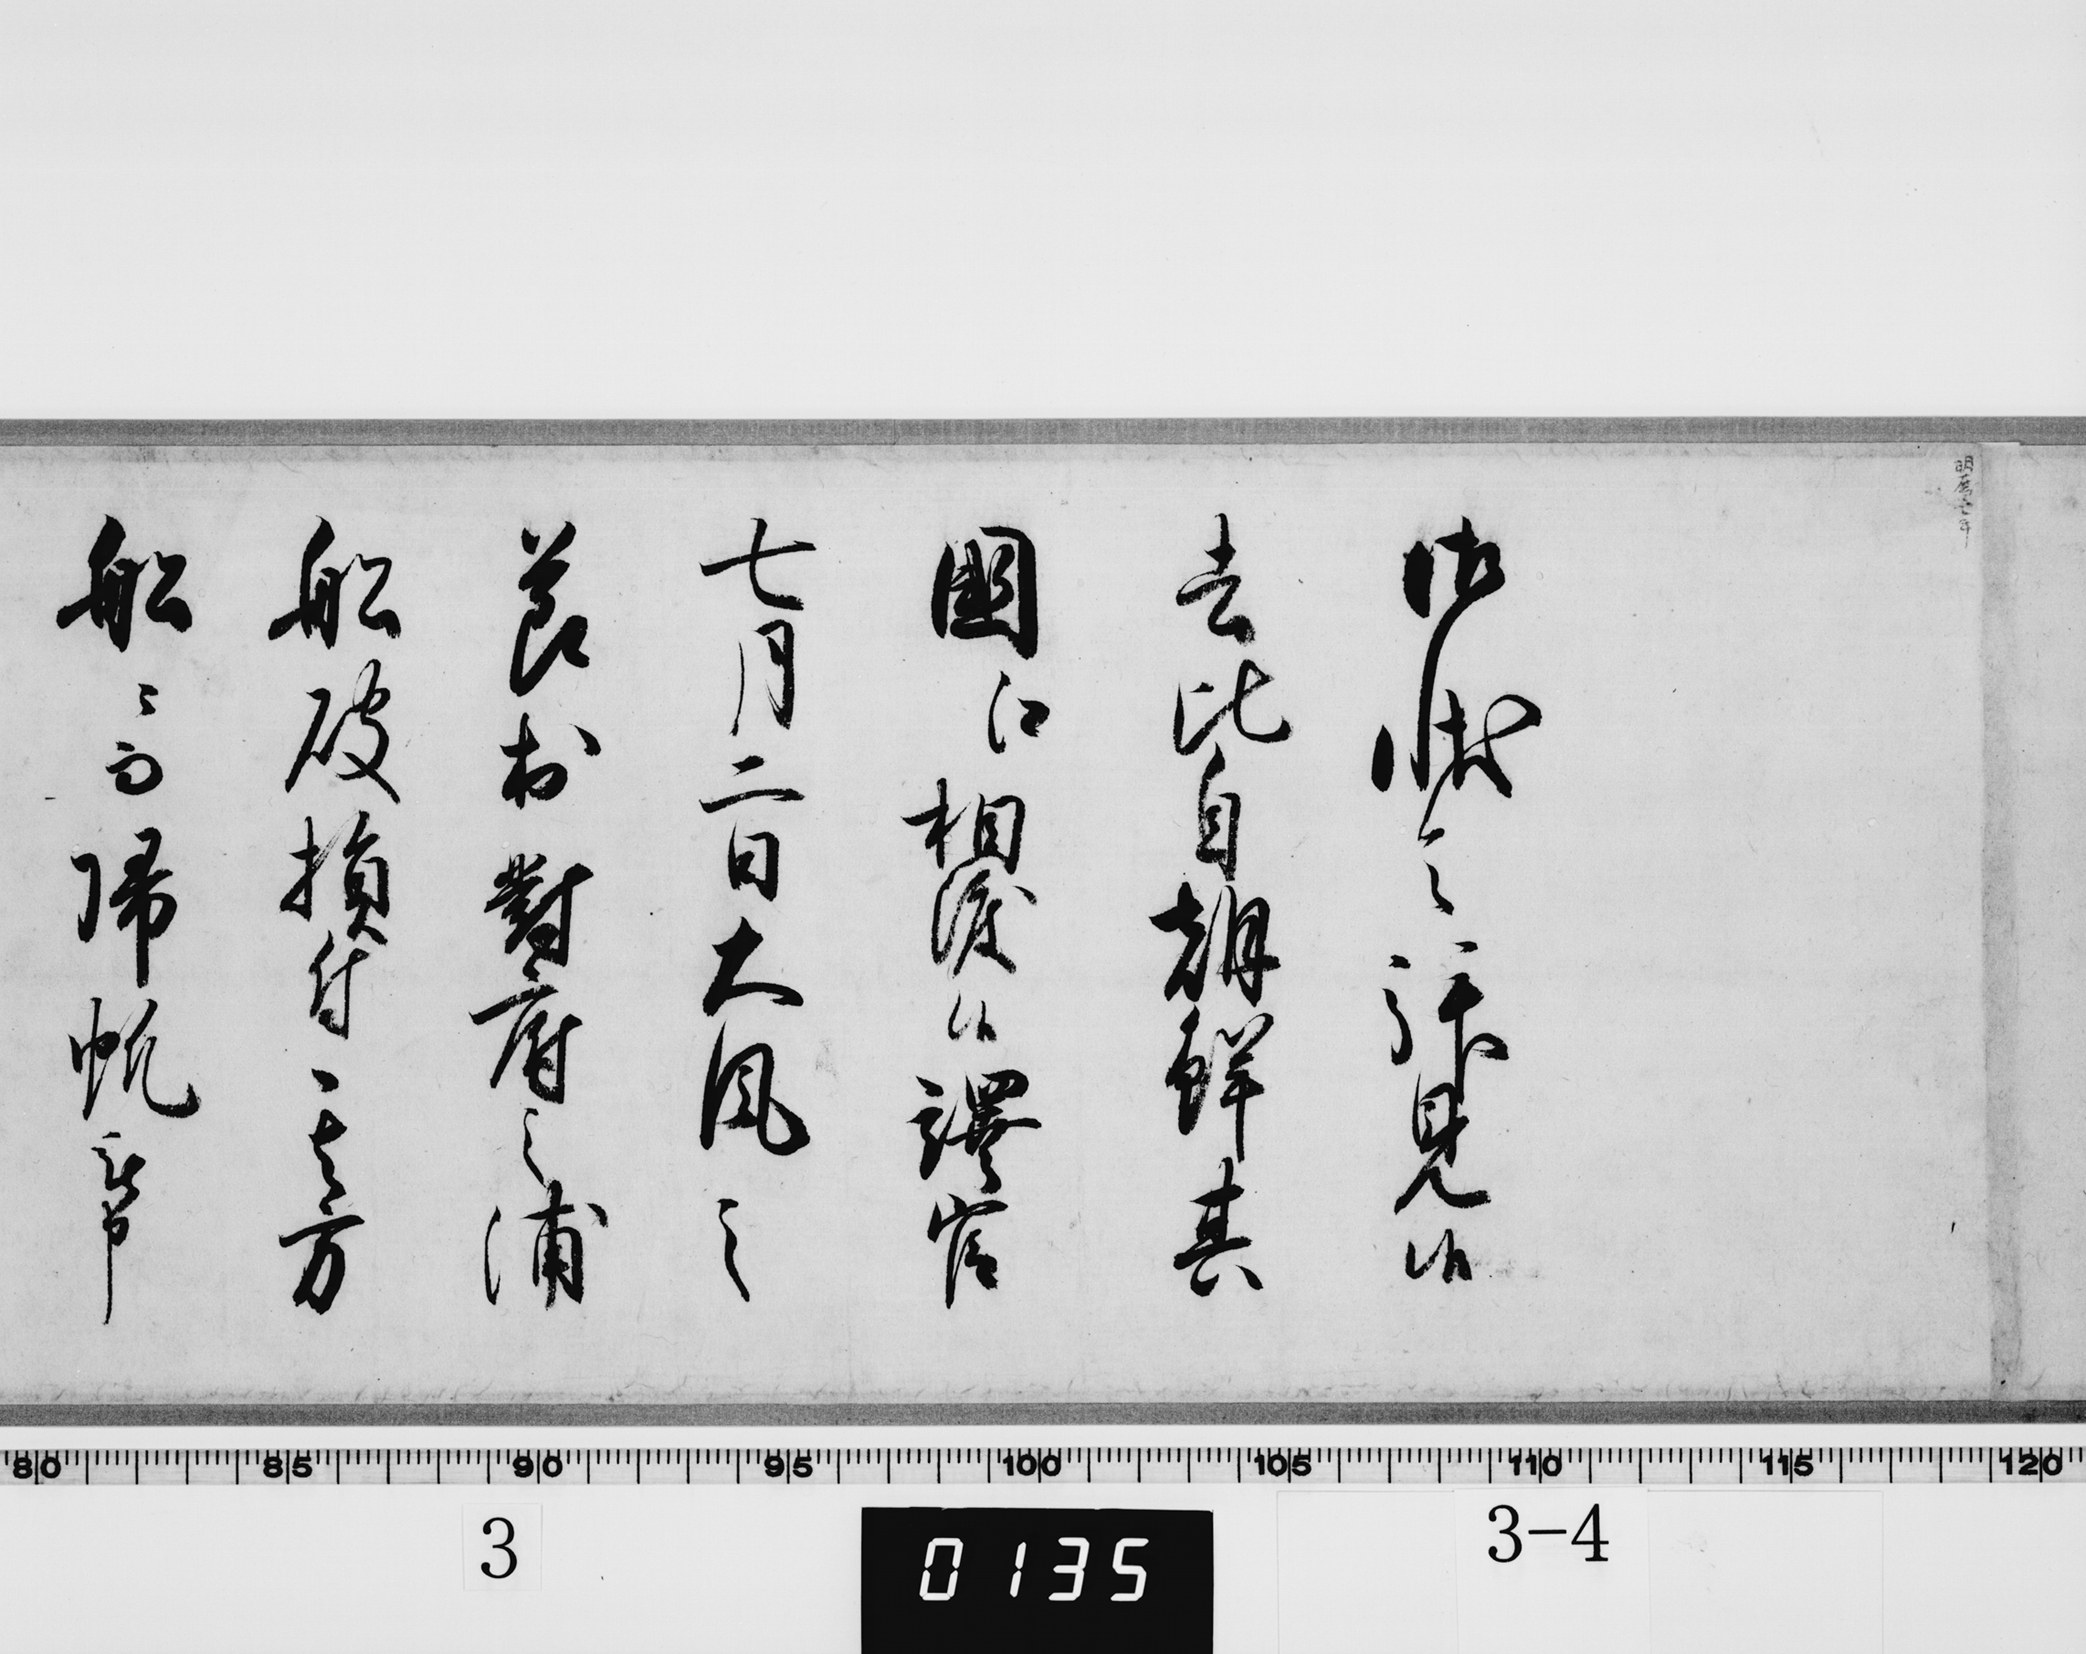 明暦元年
御状之趣令披見候
去比自朝鮮其
國江相渡候譯官
七月二日大風之
節於對府之浦
船破損付而其方
船ニ而帰帆
80 85 90 95 100 105 110 115 120
3
0135
3-4